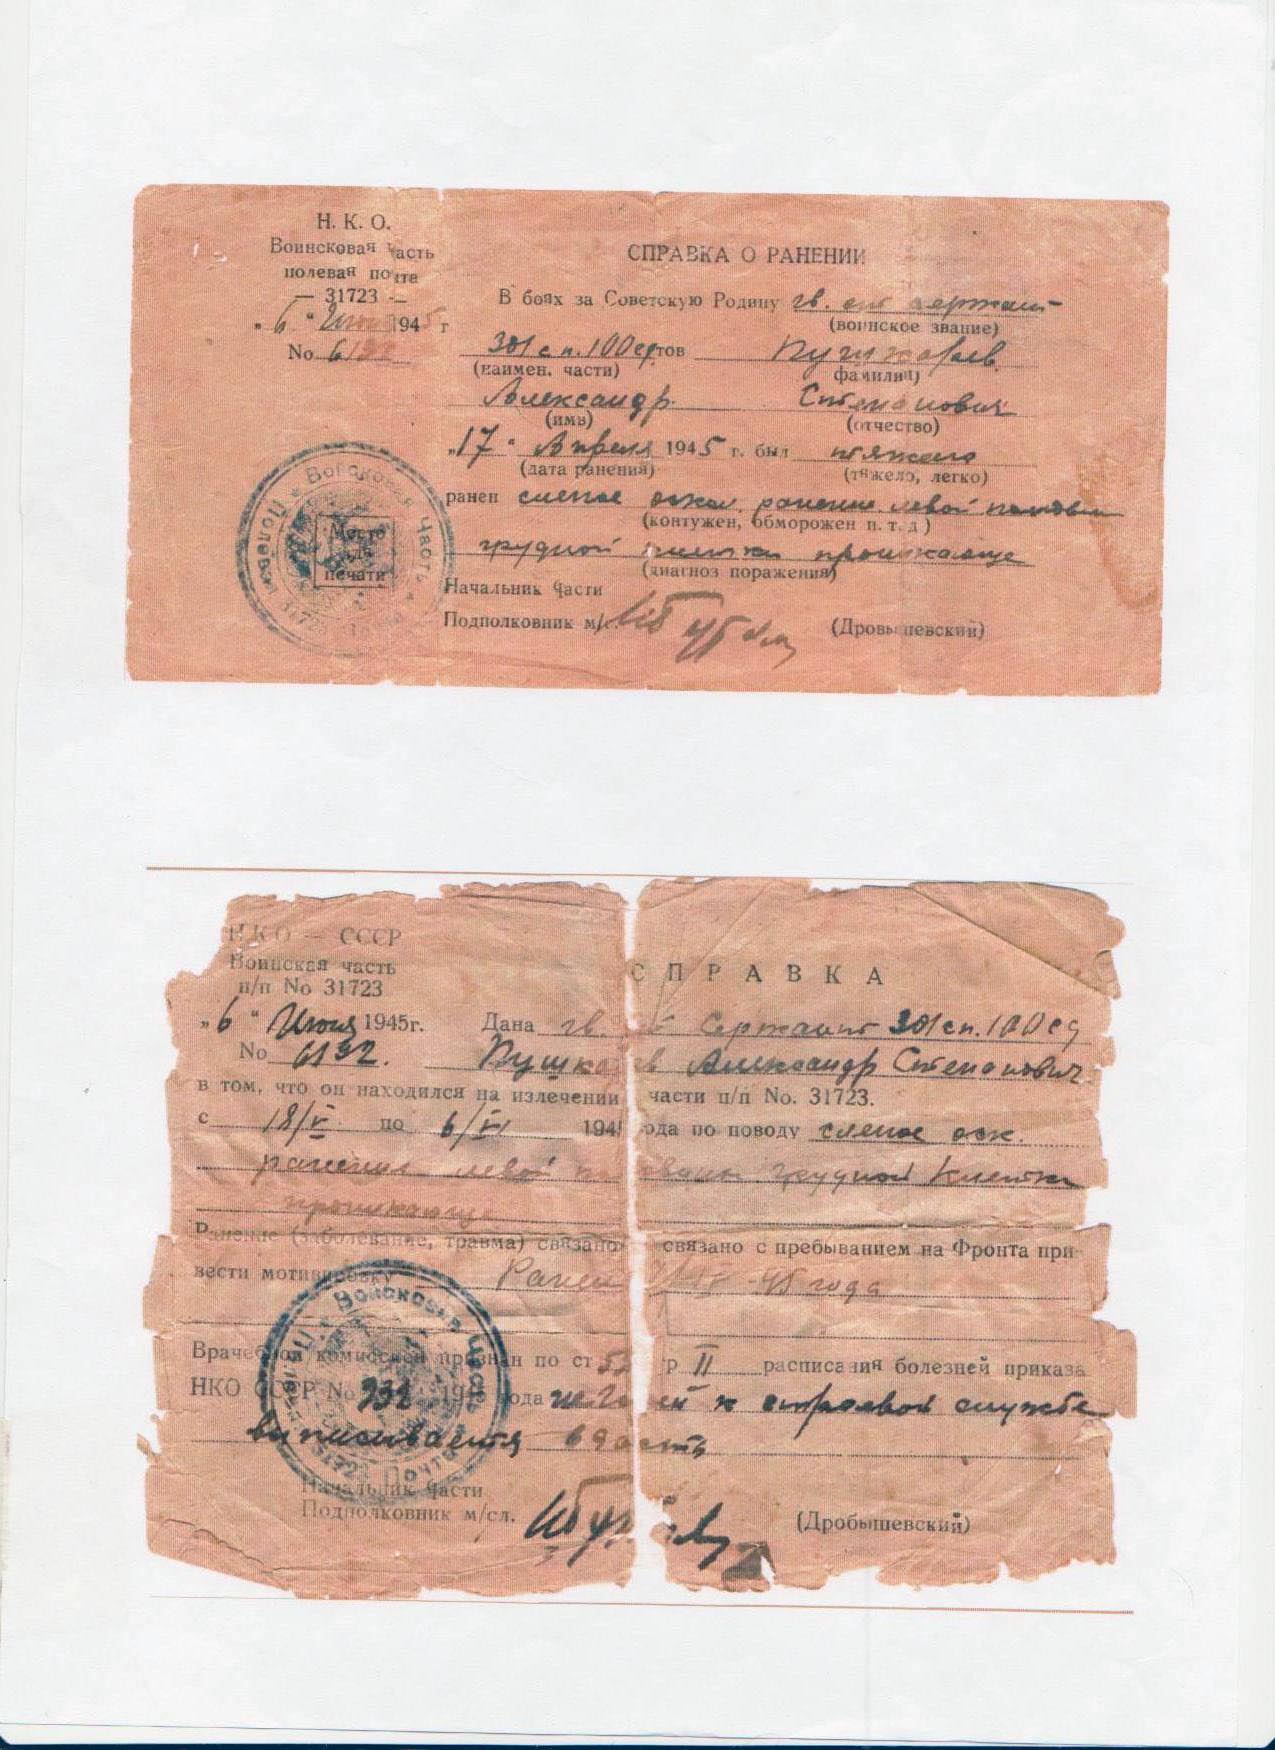 Н. К. О.
Воинсковая часть
полевая почта
— 31723 —
„ 6 " Июня 1945 г
No 6132
СПРАВКА О РАНЕНИИ
В боях за Советскую Родину гв. ст сержант
(воинское звание)
301 с п. 100 сд тов Пушкарев
(наимен. части) фамилия)
Александр Степанович
(имя) (отчество)
„17" Апреля 1945 г. был тяжело
(дата ранения) (тяжело, легко)
ранен слепое оскол. ранение левой половин
(контужен, обморожен и. т. д )
грудной клетки проникающе
(диагноз поражения)
Начальник Части
Подполковник м/с. (Дровышевский)
Войсковая Часть Полевая Почта 31723
Место
для
печати
НКО — СССР
Воинская часть
п/п No 31723
„6 " Июня 1945г.
No 6132.
СПРАВКА
Дана гв. Сержант 301 сп. 100 сд
Пушка ев Александр Степанович
в том, что он находился на излечении части п/п No. 31723.
с 18/V по 6/VI 194 ода по поводу слепое оск.
ранения левой половины грудной клетки
проникающе
Ранение (заболевание, травма) связано связано с пребыванием на Фронта при-
вести мотивировку Ранен 45 года
Врачебной комиссией признан по ст 5 гр II расписания болезней приказа
НКО СССР No 336 194 ода не годен к строевой службе
выписывается в часть
Начальник Части
Подполковник м/сл. (Дробышевский)
Войсковая Часть Полевая Почта 31723